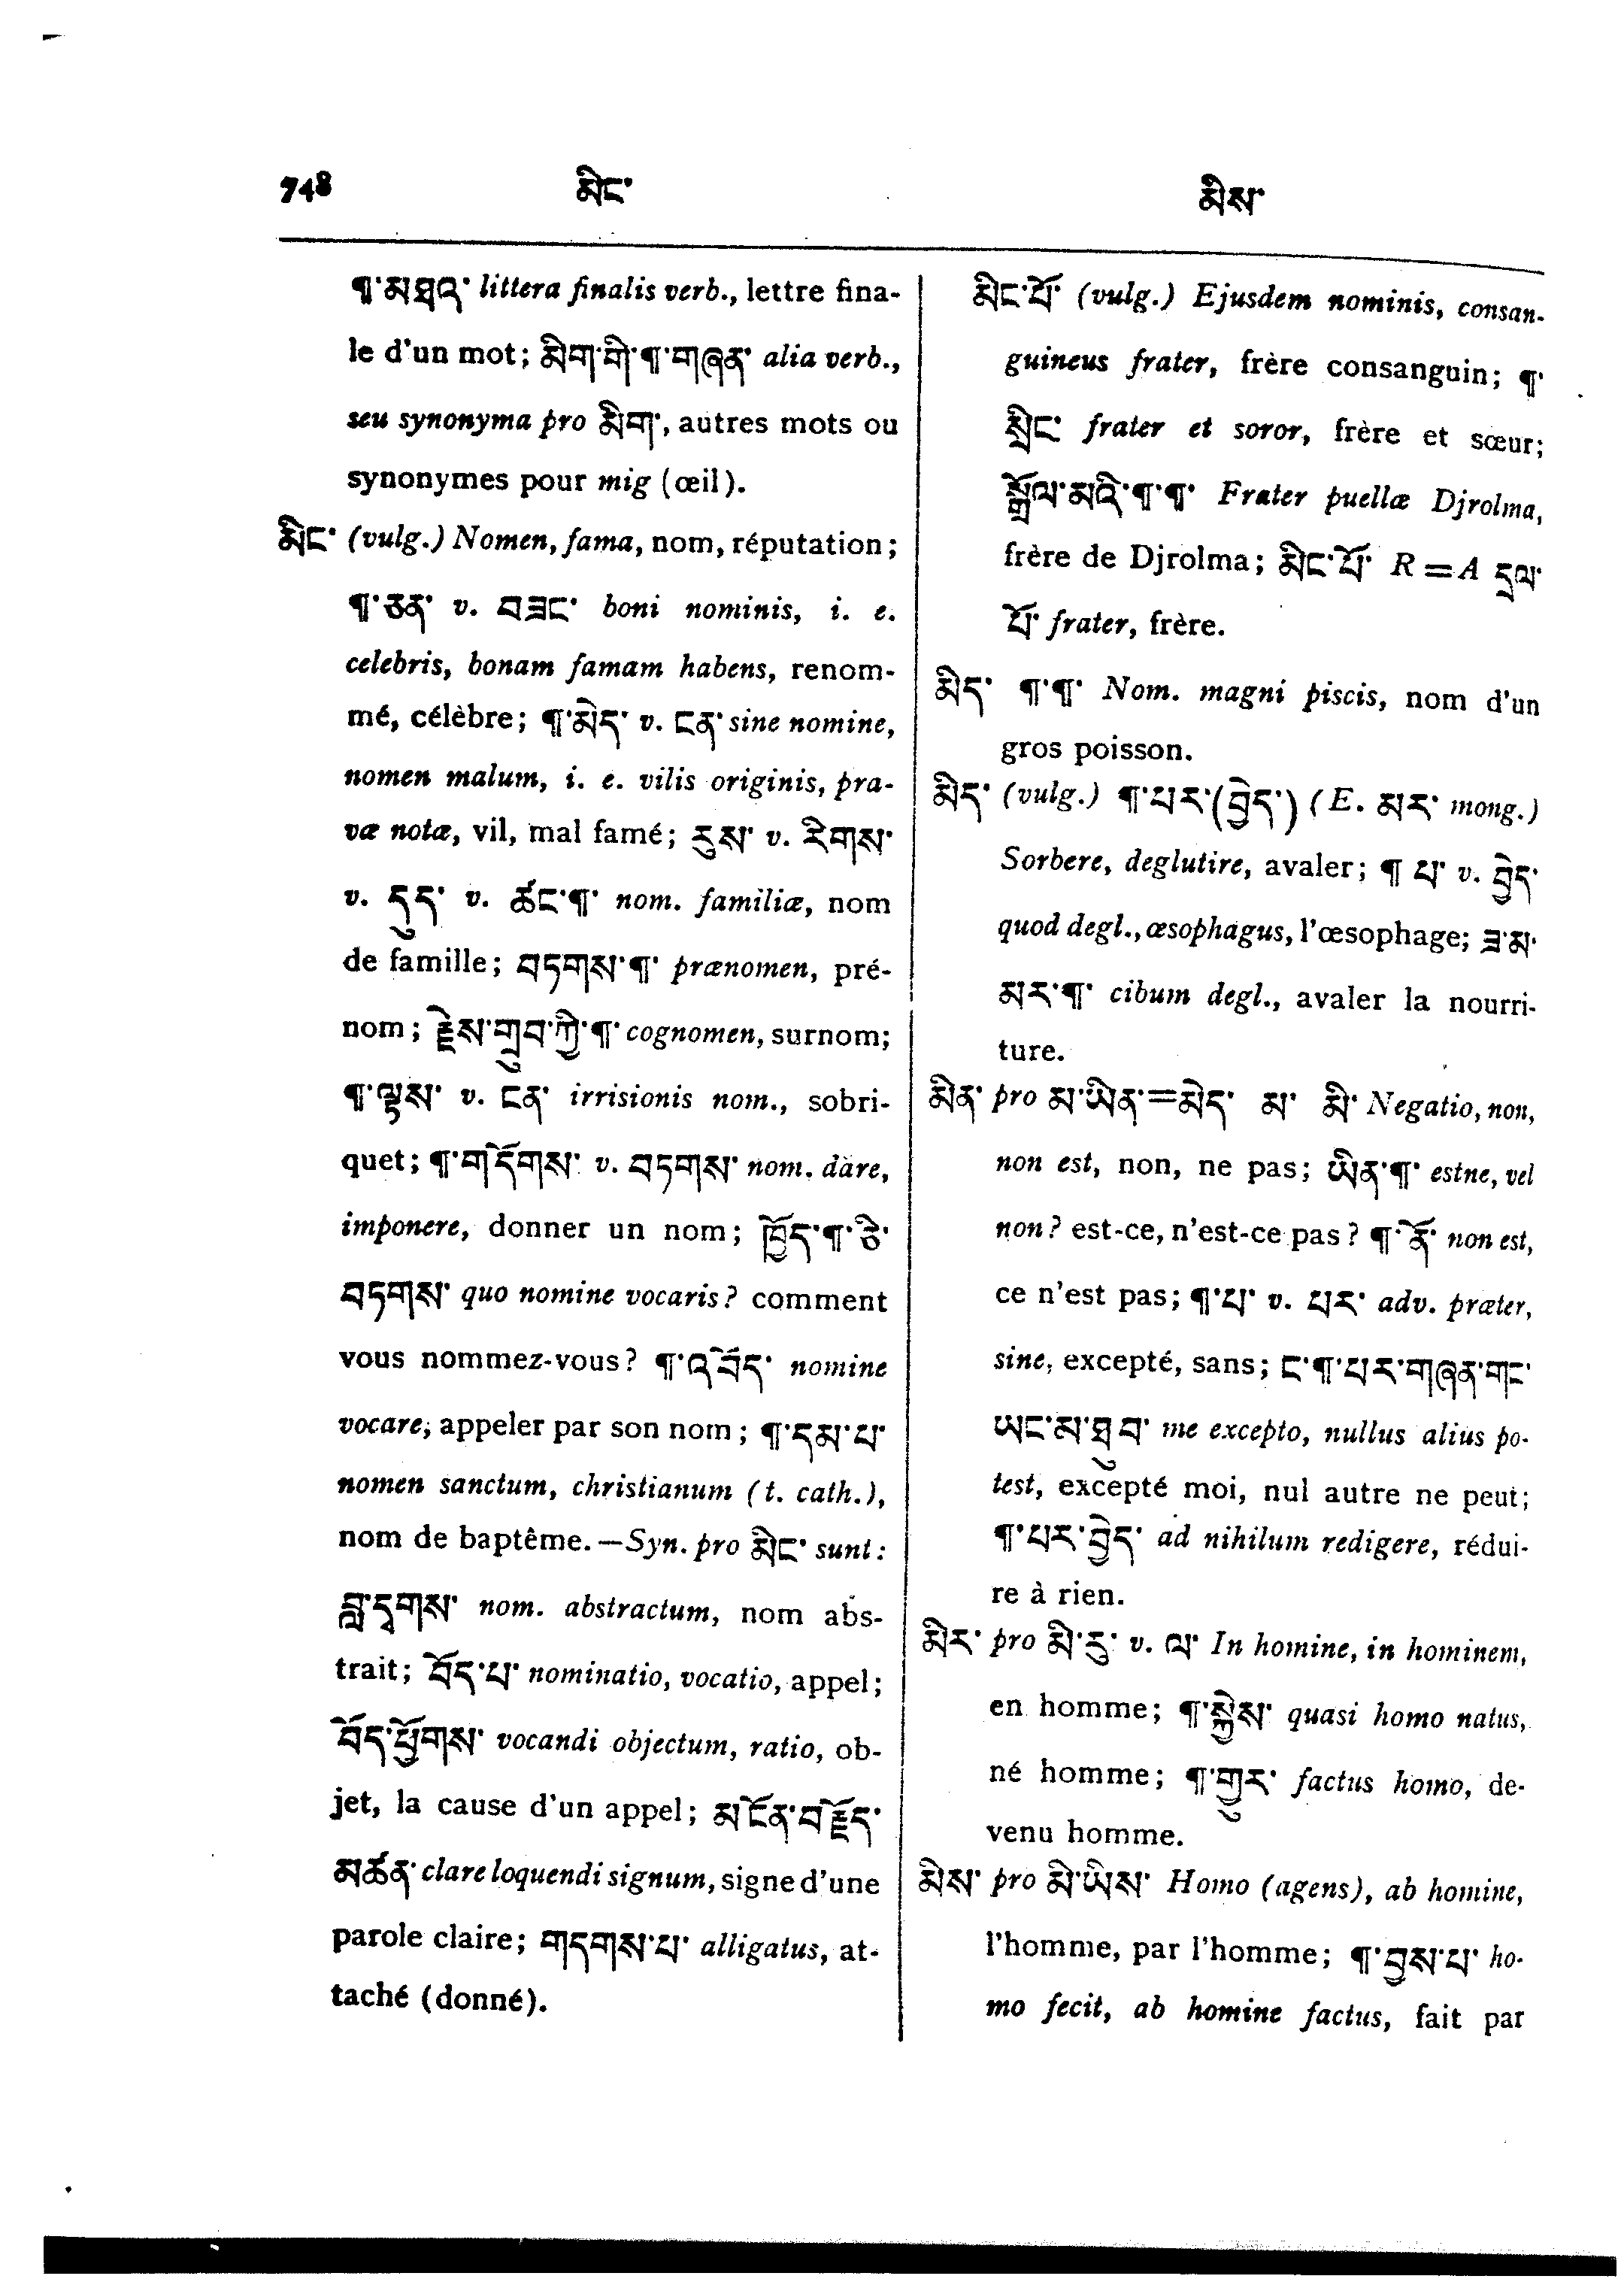 748 མིང་ མིས་
¶་མཐའ་ littera finalis verb., lettre fina-
le d'un mot; མིག་གི་¶་གཞན་ alia verb.,
seu synonyma pro མིག་, autres mots ou
synonymes pour mig (œil).
མིང་ (vulg.) Nomen, fama, nom, réputation;
¶་ཅན་ v. བཟང་ boni nominis, i. e.
celebris, bonam famam habens, renom-
mé, célèbre; ¶་མེད་ v. ངན་ sine nomine,
nomen malum, i. e. vilis originis, pra-
væ notæ, vil, mal famé; རུས་ v. རིགས་
v. དུད་ v. ཚང་¶་ nom. familiæ, nom
de famille; བཏགས་¶་ prænomen, pré-
nom; རྗེས་གྲུབ་ཀྱི་¶་ cognomen, surnom;
¶་ལྟས་ v. ངན་ irrisionis nom., sobri-
quet; ¶་གདོགས་ v. བཏགས་ nom. dare,
imponere, donner un nom; ཁྱོད་¶་ཅི་
བཏགས་ quo nomine vocaris? comment
vous nommez-vous? ¶་འབོད་ nomine
vocare, appeler par son nom; ¶་དམ་པ་
nomen sanctum, christianum (t. cath.),
nom de baptême. — Syn. pro མིང་ sunt:
བླ་དྭགས་ nom. abstractum, nom abs-
trait; བོད་པ་ nominatio, vocatio, appel;
བོད་ཕྱོགས་ vocandi objectum, ratio, ob-
jet, la cause d'un appel; མངོན་བརྗོད་
མཚན་ clare loquendi signum, signe d'une
parole claire; གདགས་པ་ alligatus, at-
taché (donné).
མིང་པོ་ (vulg.) Ejusdem nominis, consan-
guineus frater, frère consanguin; ¶་
སྲིང་ frater et soror, frère et sœur;
སྒྲོལ་མའི་¶་¶་ Frater puellæ Djrolma,
frère de Djrolma; མིང་པོ་ R = A དྲལ་
པོ་ frater, frère.
མིད་ ¶་¶་ Nom. magni piscis, nom d'un
gros poisson.
མིད་ (vulg.) ¶་པར་(བྱེད་) (E. མར་ mong.)
Sorbere, deglutire, avaler; ¶ པ་ v. བྱེད་
quod degl., œsophagus, l'œsophage; ཟ་མ་
མར་¶་ cibum degl., avaler la nourri-
ture.
མིན་ pro མ་ཡིན་=མེད་ མ་ མི་ Negatio, non,
non est, non, ne pas; ཡིན་¶་ estne, vel
non? est-ce, n'est-ce pas? ¶་ནོ་ non est,
ce n'est pas; ¶་པ་ v. པར་ adv. præter,
sine, excepté, sans; ང་¶་པར་གཞན་གང་
ཡང་མ་ཐུབ་ me excepto, nullus alius po-
test, excepté moi, nul autre ne peut;
¶་པར་བྱེད་ ad nihilum redigere, rédui-
re à rien.
མིར་ pro མི་རུ་ v. ལ་ In homine, in hominem,
en homme; ¶་སྐྱེས་ quasi homo natus,
né homme; ¶་གྱུར་ factus homo, de-
venu homme.
མིས་ pro མི་ཡིས་ Homo (agens), ab homine,
l'homme, par l'homme; ¶་བྱས་པ་ ho-
mo fecit, ab homine factus, fait par